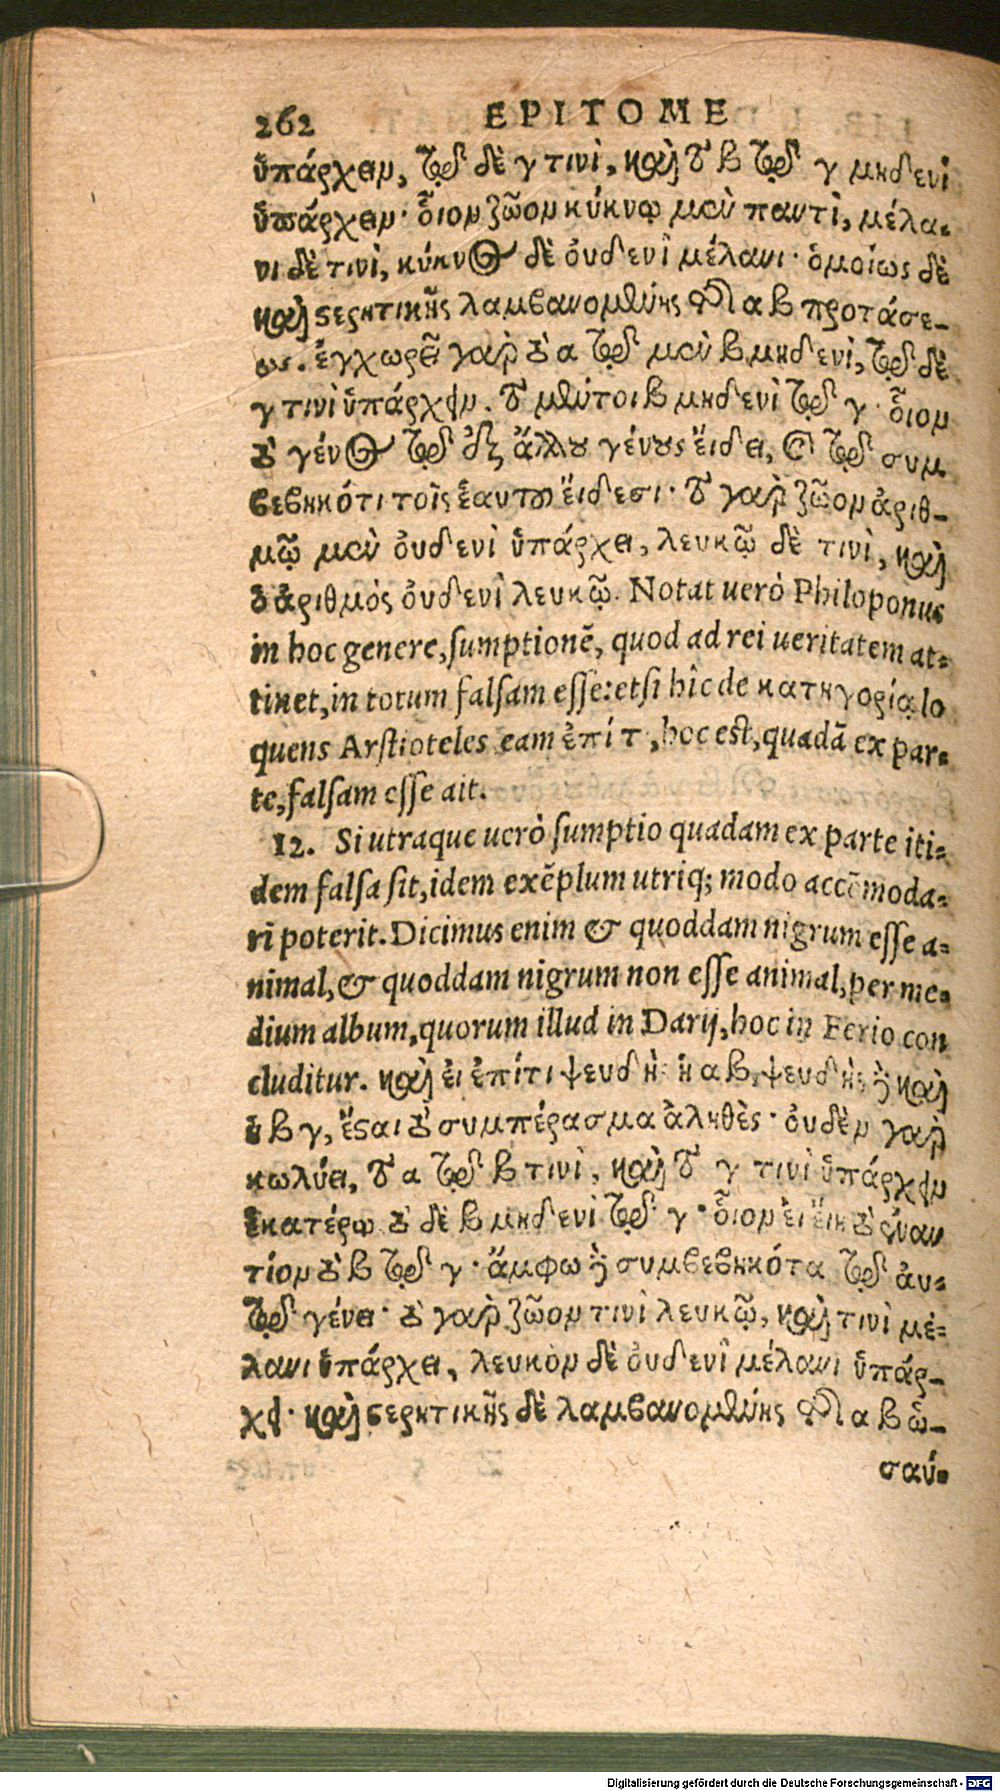 262 EPITOME
ὑπάρχειν, τῷ δὲ γ τινὶ, καὶ τὸ β τῷ γ μηδενὶ
ὑπάρχειν· οἷον ζῶον κύκνῳ μὲν παντὶ, μέλα-
νι δὲ τινὶ, κύκνος δὲ οὐδενὶ μέλανι· ὁμοίως δὲ
καὶ στερητικῆς λαμβανομένης τῆς α β προτάσε-
ως. ἐγχωρεῖ γὰρ τὸ α τῷ μὲν β μηδενὶ, τῷ δὲ
γ τινὶ ὑπάρχειν. τὸ μέντοι β μηδενὶ τῷ γ· οἷον
τὸ γένος τῷ ἐξ ἄλλου γένους εἴδει, καὶ τῷ συμ
βεβηκότι τοῖς ἑαυτοῦ εἴδεσι· τὸ γὰρ ζῶον ἀριθ-
μῷ μὲν οὐδενὶ ὑπάρχει, λευκῷ δὲ τινὶ, καὶ
ὁ ἀριθμὸς οὐδενὶ λευκῷ. Notat uerò Philoponus
in hoc genere, sumptionẽ, quod ad rei ueritatem at-
tinet, in totum falsam esse: etsi hîc de κατηγορίᾳ lo
quens Arstioteles eam ἐπί τ, hoc est, quadã ex par-
te, falsam esse ait.
12. Si utraque uerò sumptio quadam ex parte iti-
dem falsa sit, idem exẽplum utriq; modo accõmoda-
ri poterit. Dicimus enim & quoddam nigrum esse a-
nimal, & quoddam nigrum non esse animal, per me-
dium album, quorum illud in Darij, hoc in Ferio con
cluditur. καὶ εἰ ἐπίτι ψευδὴς ἡ α β, ψευδὴς δὲ καὶ
ἡ β γ, ἔσται τὸ συμπέρασμα ἀληθὲς· οὐδὲν γὰρ
κωλύει, τὸ α τῷ β τινὶ, καὶ τῷ γ τινὶ ὑπάρχειν
ἑκατέρῳ τὸ δὲ β μηδενὶ τῷ γ· οἷον εἰ εἴη τὸ ἐναν
τίον τὸ β τῷ γ· ἄμφω δὲ συμβεβηκότα τῷ αὐ-
τῷ γένει· τὸ γὰρ ζῶον τινὶ λευκῷ, καὶ τινὶ μέ-
λανι ὑπάρχει, λευκὸν δὲ οὐδενὶ μέλανι ὑπάρ-
χει· καὶ στερητικῆς δὲ λαμβανομένης τῆς α β ὡ-
σαύ-
Digitalisierung gefördert durch die Deutsche Forschungsgemeinschaft - DFG